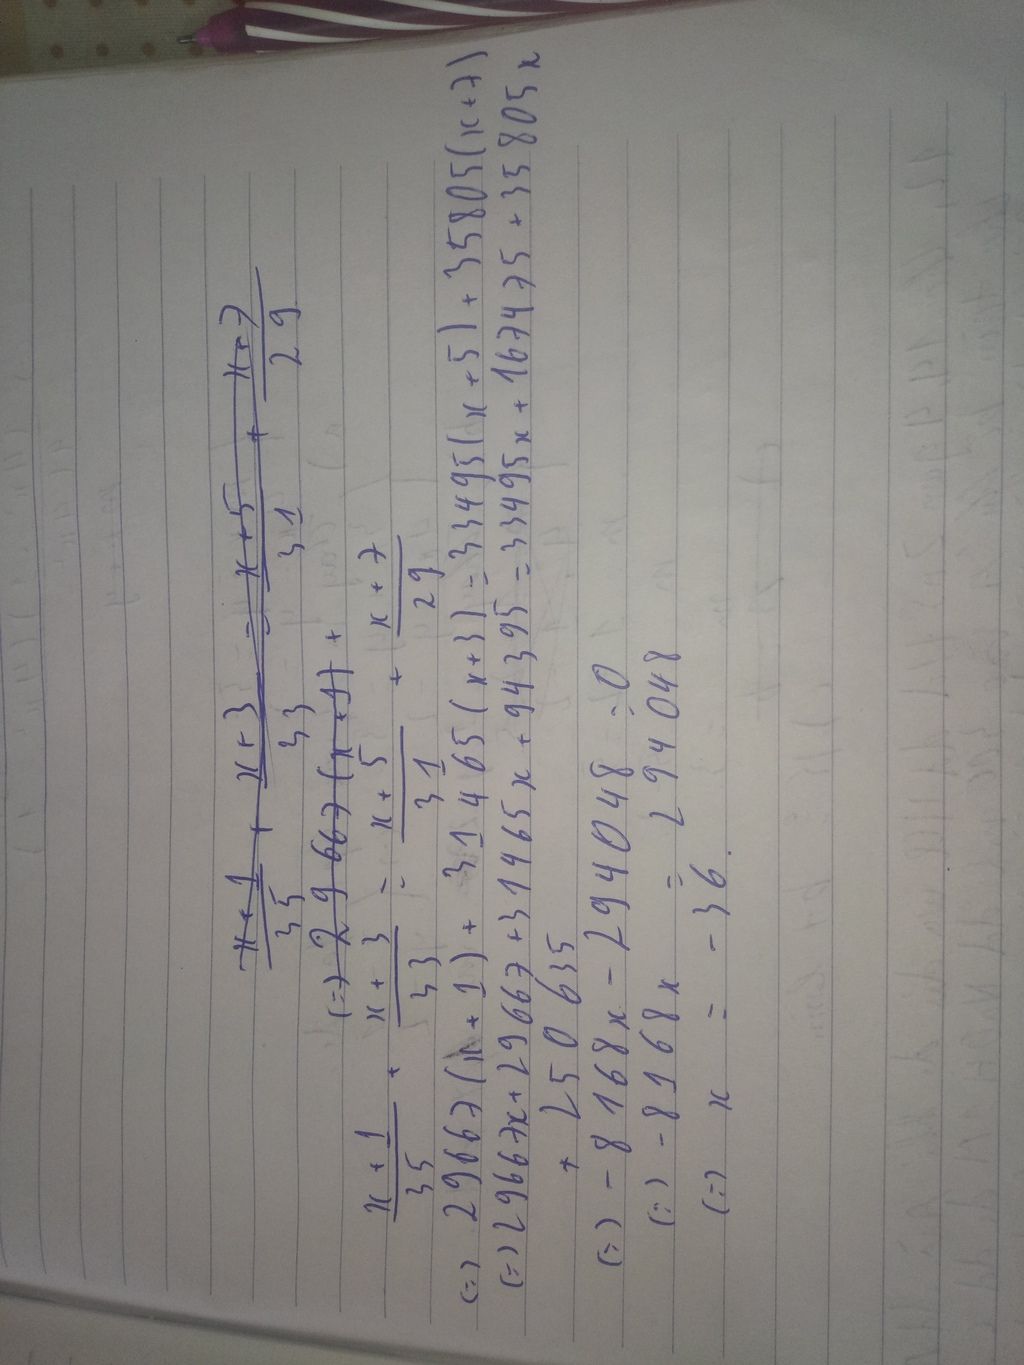 x+1/35 + x+3/33 = x+5/31 + x+7/29
(=) 29667(x+1) +
x+1/35 + x+3/33 = x+5/31 + x+7/29
(=) 29667(x+1) + 31465(x+3) = 33495(x+5) + 35805(x+7)
(=) 29667x + 29667 + 31465x + 94395 = 33495x + 167475 + 35805x
+ 250635
(=) -8168x - 294048 = 0
(=) -8168x = 294048
(=) x = -36.